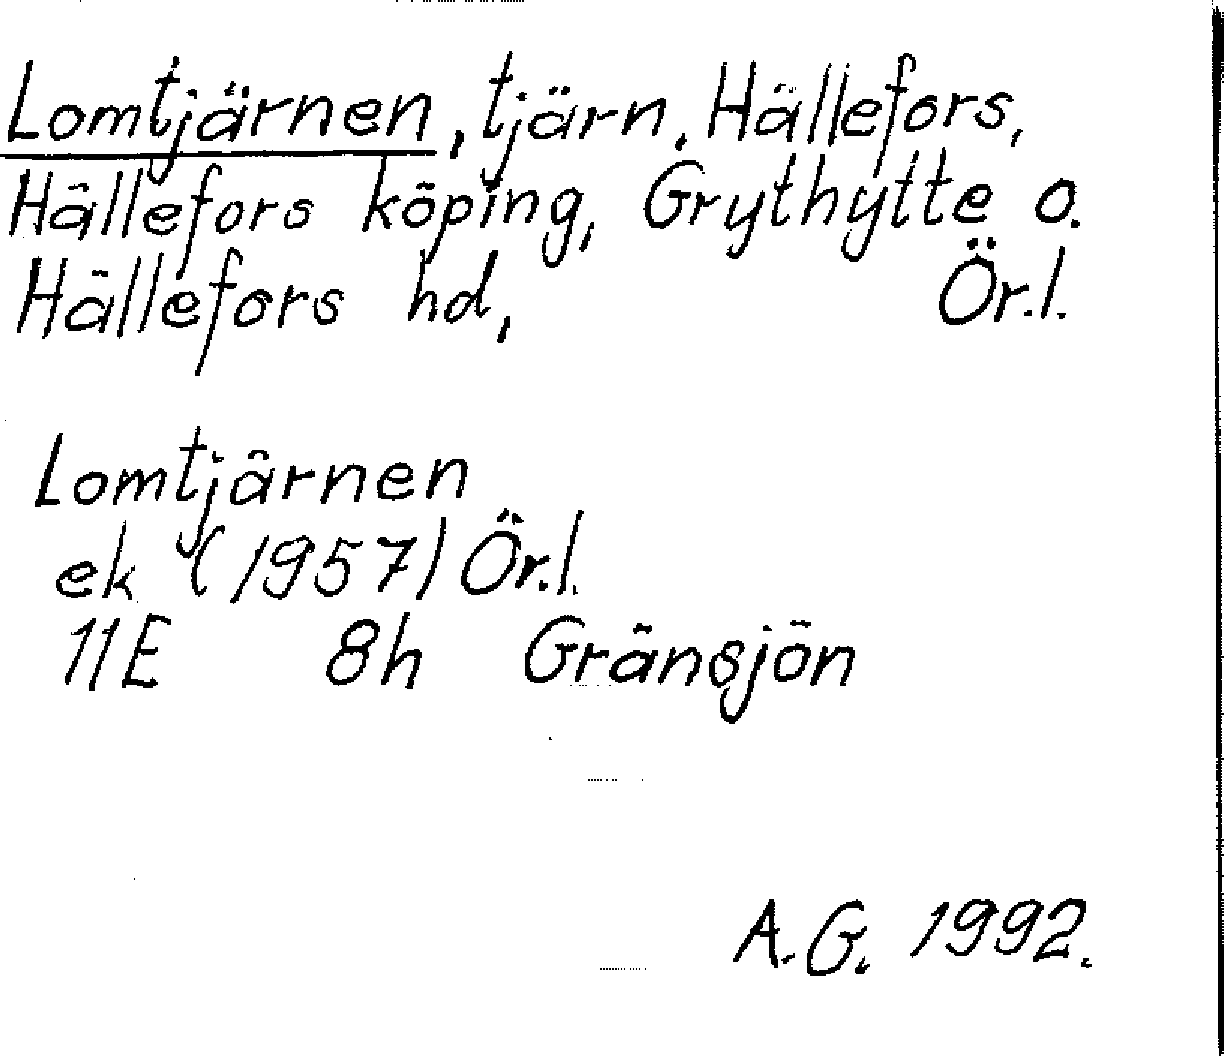 Lomtjärnen, tjärn, Hällefors,
Hällefors köping, Grythytte o.
Hällefors hd, Ör.l.
Lomtjärnen
ek (1957) Ör.l.
11E 8h Gränsjön
A.G. 1992.